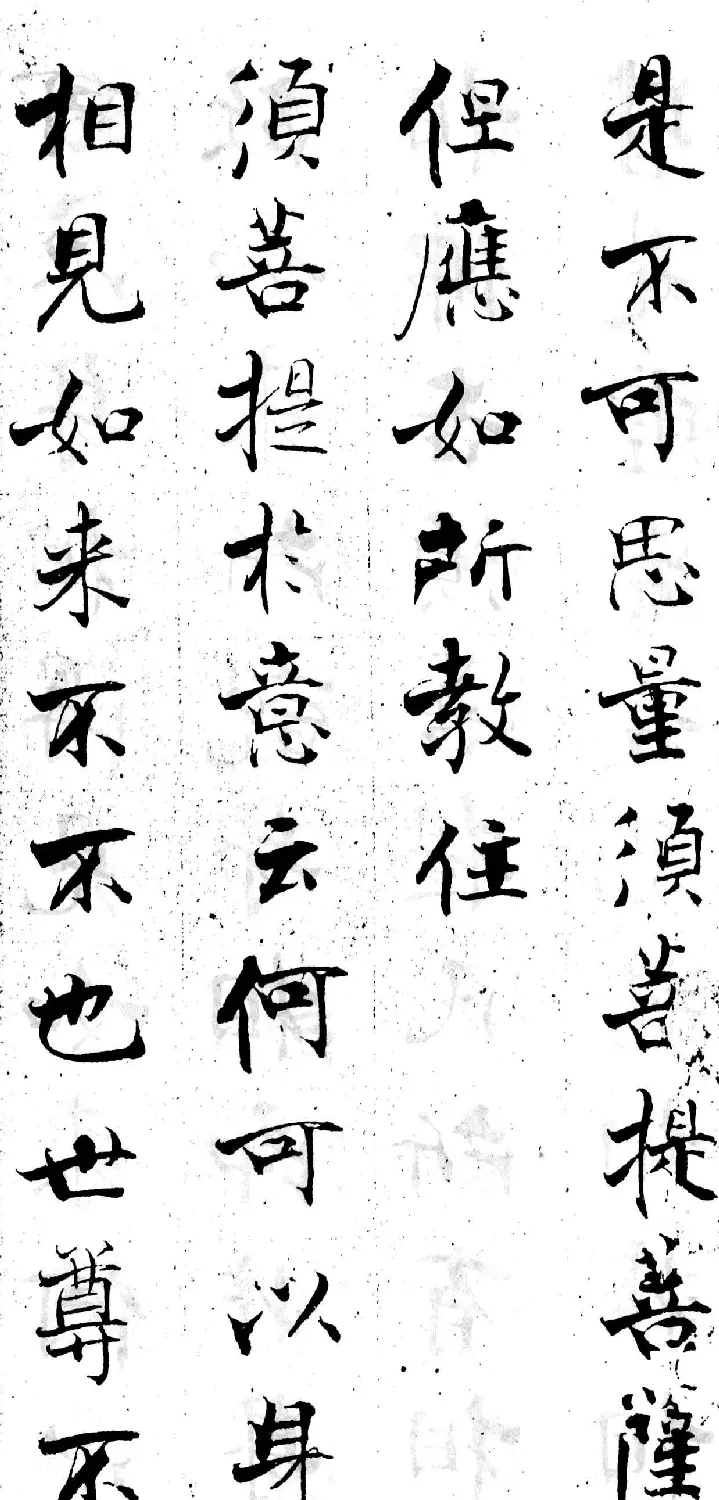 是不可思量須菩提菩薩
但應如所教住
須菩提於意云何可以身
相見如来不不也世尊不